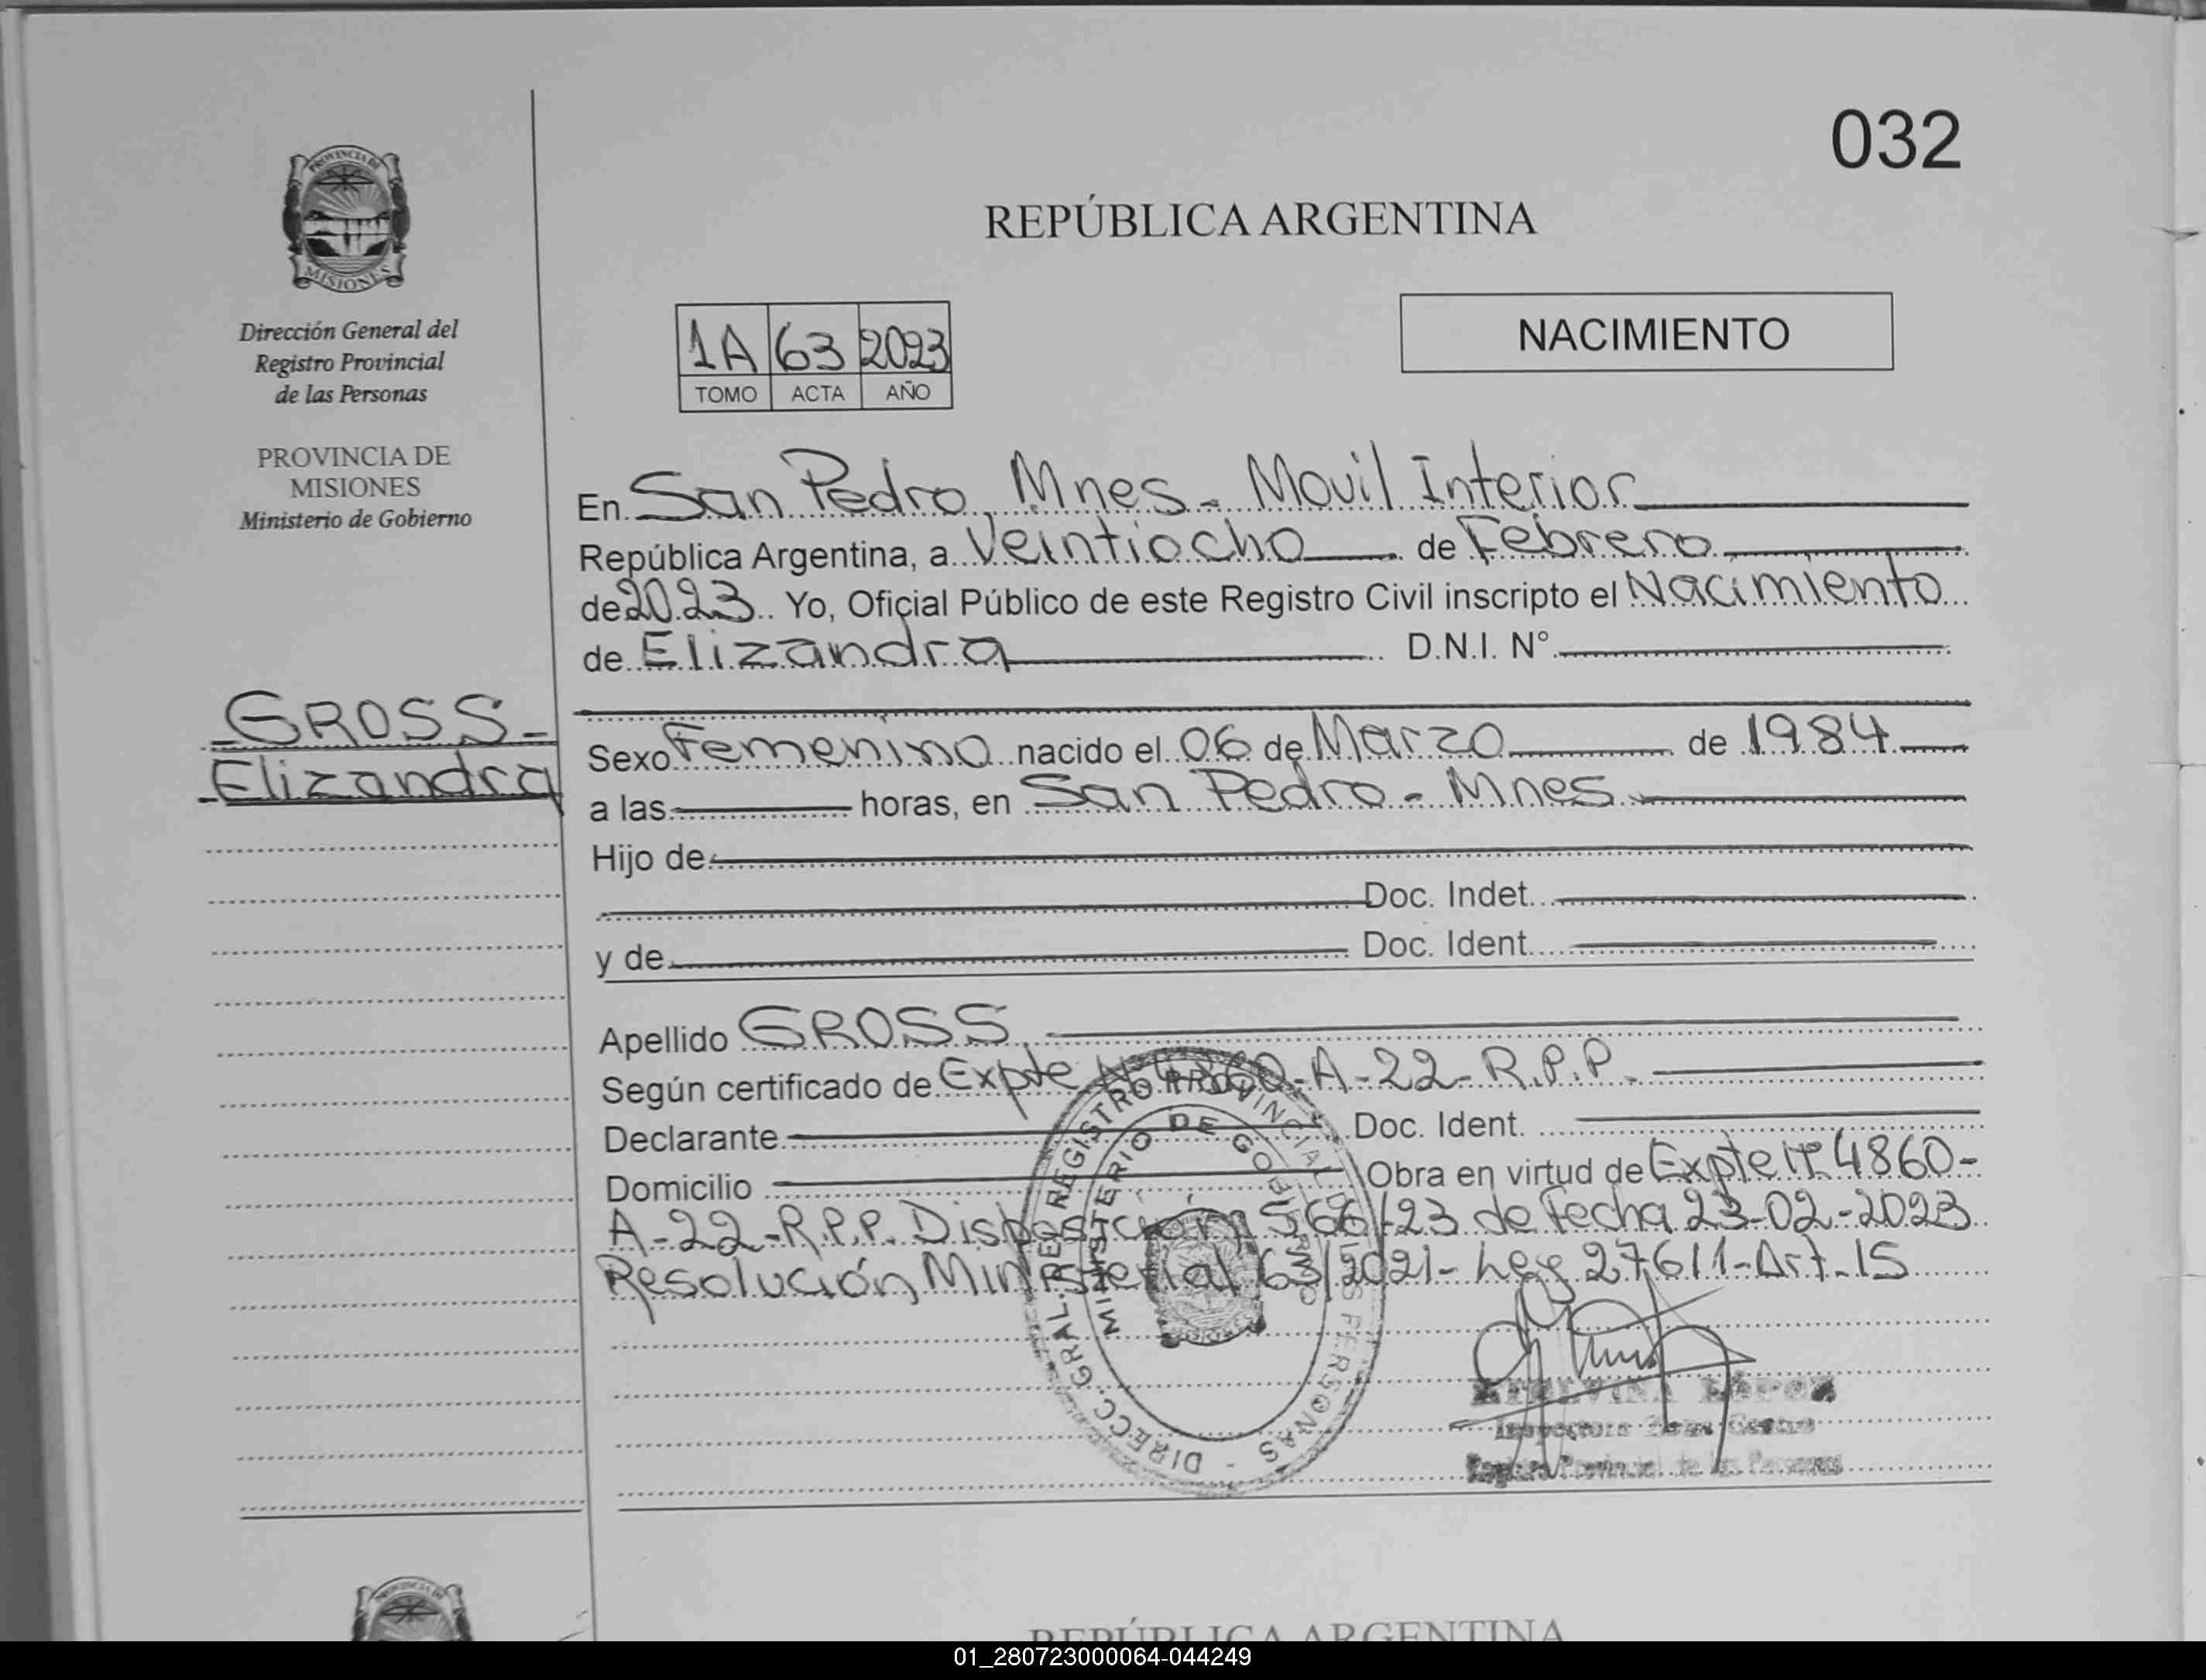 032
PROVINCIA DE
MISIONES
Dirección General del
Registro Provincial
de las Personas
PROVINCIA DE
MISIONES
Ministerio de Gobierno
GROSS
Elizandra
REPÚBLICA ARGENTINA
NACIMIENTO
1A 63 2023
TOMO ACTA AÑO
En San Pedro Mnes - Movil Interior
República Argentina, a Veintiocho de Febrero
de 2023 Yo, Oficial Público de este Registro Civil inscripto el Nacimiento
de Elizandra D.N.I. N°
Sexo Femenino nacido el 06 de Marzo de 1984
a las horas, en San Pedro - Mnes
Hijo de
Doc. Indet.
y de Doc. Ident.
Apellido GROSS
Según certificado de Expte N° 4860-A-22-R.P.P.
Declarante Doc. Ident.
Domicilio Obra en virtud de Expte N° 4860-
A-22-R.P.P. Disposición 566/23 de Fecha 23-02-2023
Resolución Ministerial 63/2021- Ley 27611-Art. 15
DIRECC. GRAL. DEL REGISTRO PROVINCIAL DE LAS PERSONAS -
MINISTERIO DE GOBIERNO
Registro Provincial de las Personas
REPÚBLICA ARGENTINA
01_280723000064-044249